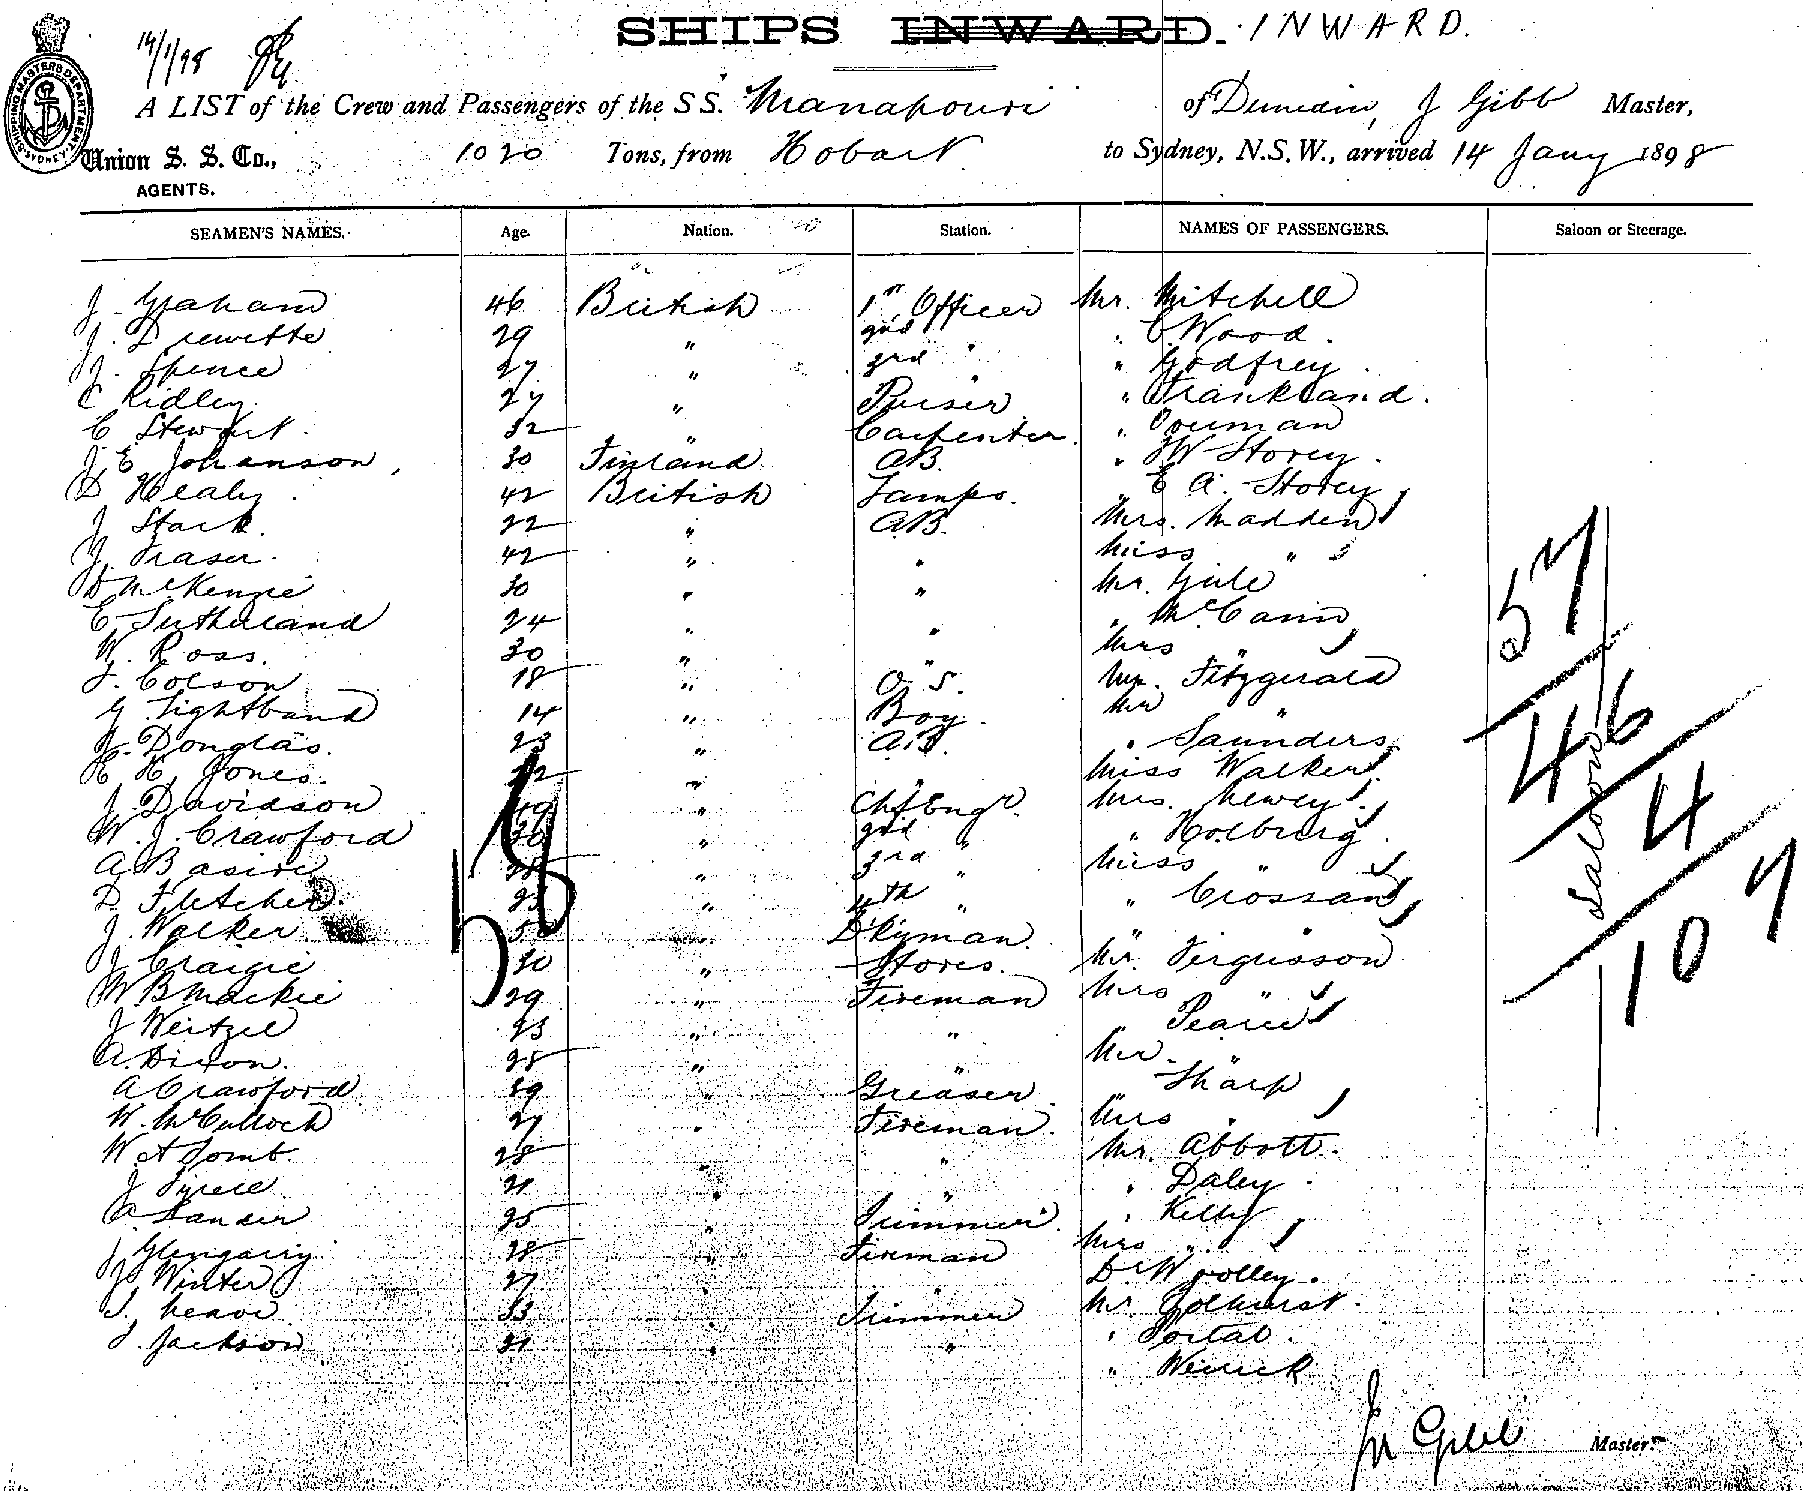 SHIPS INWARD. INWARD.
14/1/98
A LIST of the Crew and Passengers of the S.S. Manapouri of Dunedin, J Gibb Master,
Union S. S. Co., 1020 Tons, from Hobart to Sydney, N.S.W., arrived 14 Jany 1898
AGENTS.
SEAMEN'S NAMES. Age. Nation. Station. NAMES OF PASSENGERS. Saloon or Steerage.
J. Graham 46 British 1st Officer Mr. Mitchell
J. Drewette 29 " 2nd " " C. Wood.
J. Spence 27 " 3rd " " Godfrey.
C Ridley 27 " Purser " Frankland.
C Stewart. 32 " Carpenter. "
J. E. Johanson, 30 Finland AB. " JW Storey.
D Healy. 42 British Lamps. " E A. Storey
J Stark. 22 " AB. Mrs. Madden
J. Fraser. 42 " " Miss "
D McKenzie 30 " " Mr.
E Sutherland 24 " " " McCann
W. Ross. 30 " " Mrs "
J. Colson 18 " O.S. Mr. Fitzgerald
G Lightband 14 " Boy. Mr "
J. Douglas. 23 " A.B. " Saunders
H. H. Jones. " " Miss Walker
J. Davidson 49 " Chf Engr. Mrs. Mewey
W. J. Crawford 30 " 2nd " " Holbrug
A Basire " 3rd " Miss "
D Fletcher. 23 " 4th " " Crossan
J. Walker 50 " D'kyman. " "
J Craigie 30 " Stores. Mr. Fergusson
W B Mackie 29 " Fireman Mrs "
J Weitzel 23 " " " Pearce
A. Dixon. 28 " " Mr. "
A Crawford 39 " Greaser " Sharp
W. McCulloch 27 " Fireman. Mrs "
W A Lomb. 28 " " Mr. Abbott.
J 21 " " " Daley.
A. Lander 25 " Trimmer. " Kelly
J Glengarry 28 " Fireman Mrs "
J Winter 27 " " Dr Woolley.
33 " Trimmer Mr Golhurst.
J. Jackson 21 " " " Portal.
"
57
46
4
107
Saloon
Jn Gibb Master.